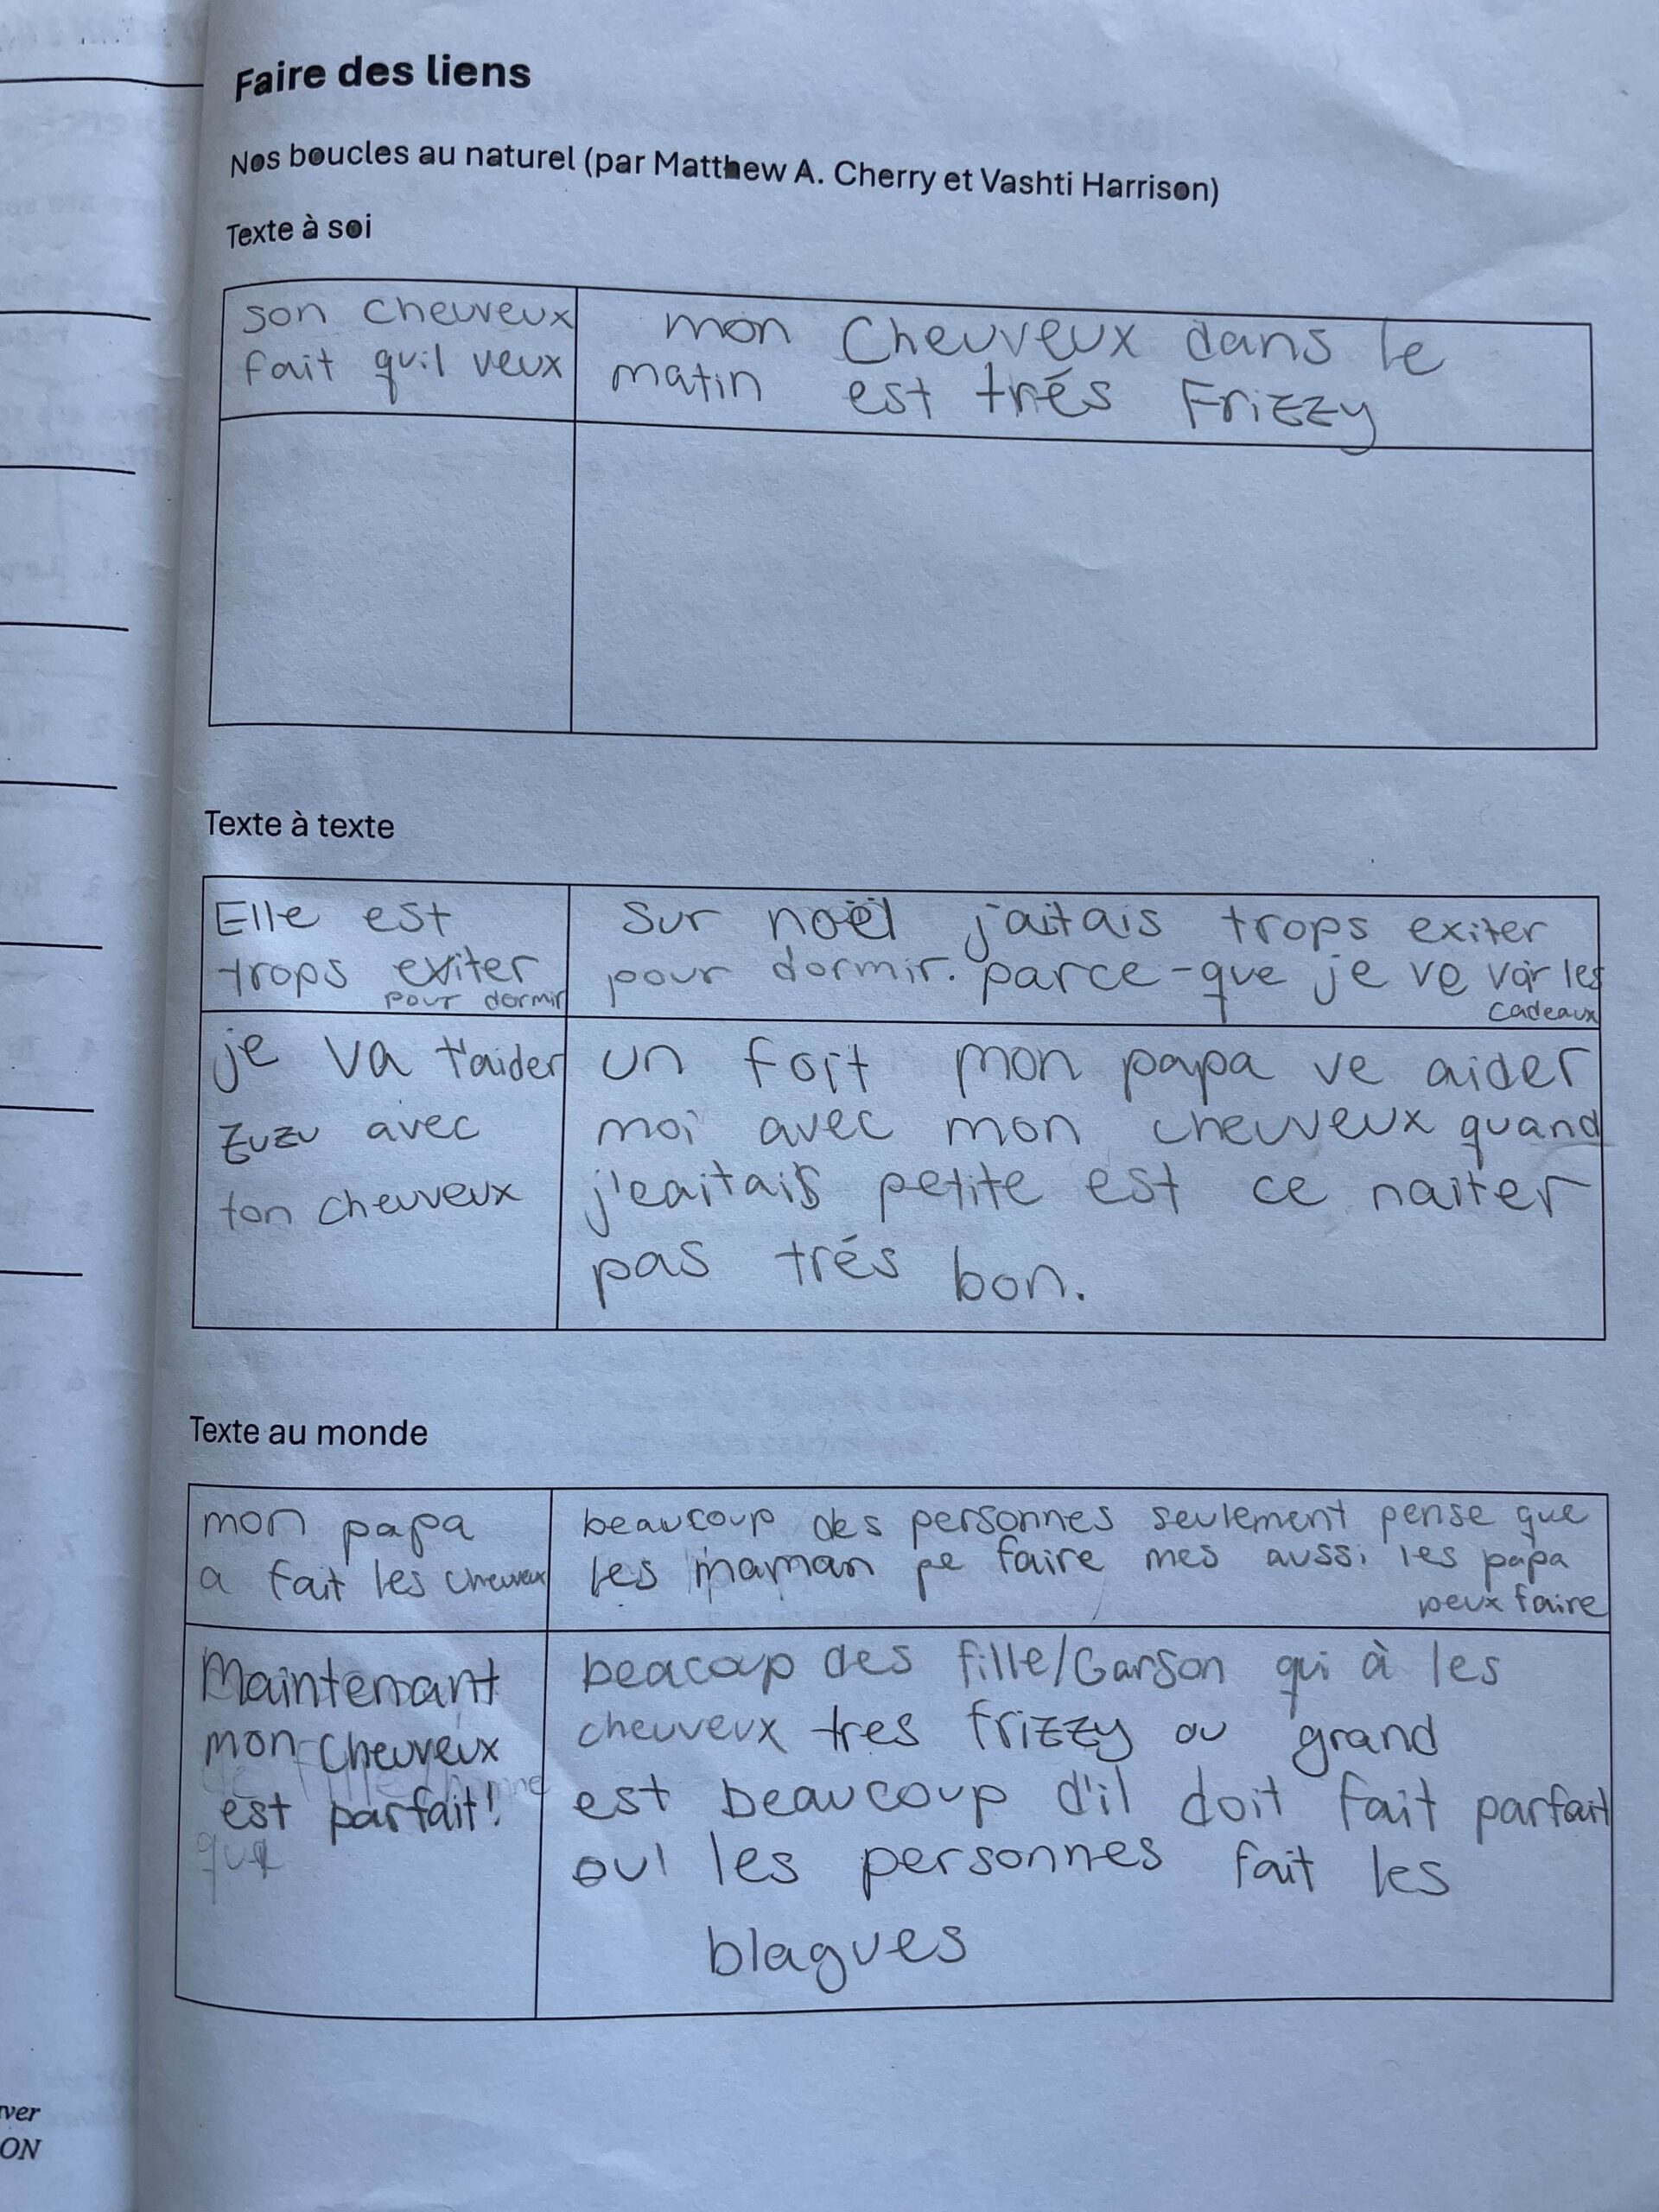 Faire des liens
Nos boucles au naturel (par Matthew A. Cherry et Vashti Harrison)
Texte à soi
son cheuveux
fait quil veux
mon Cheuveux dans le
matin est trés Frizzy
Texte à texte
Elle est
trops exiter
pour dormir
Sur noël j'aitais trops exiter
pour dormir. parce-que je ve voir les
cadeaux
je va t'aider
zuzu avec
ton cheuveux
un foit mon papa ve aider
moi avec mon cheuveux quand
j'eaitais petite est ce naiter
pas trés bon.
Texte au monde
mon papa
a fait les cheuveux
beaucoup des personnes seulement pense que
les maman pe faire mes aussi les papa
peux faire
Maintenant
mon cheuveux
est parfait!
que
beacoup des fille/Garson qui à les
cheuveux tres frizzy ou grand
est beaucoup d'il doit fait parfait
oui les personnes fait les
blagues
ver
ON